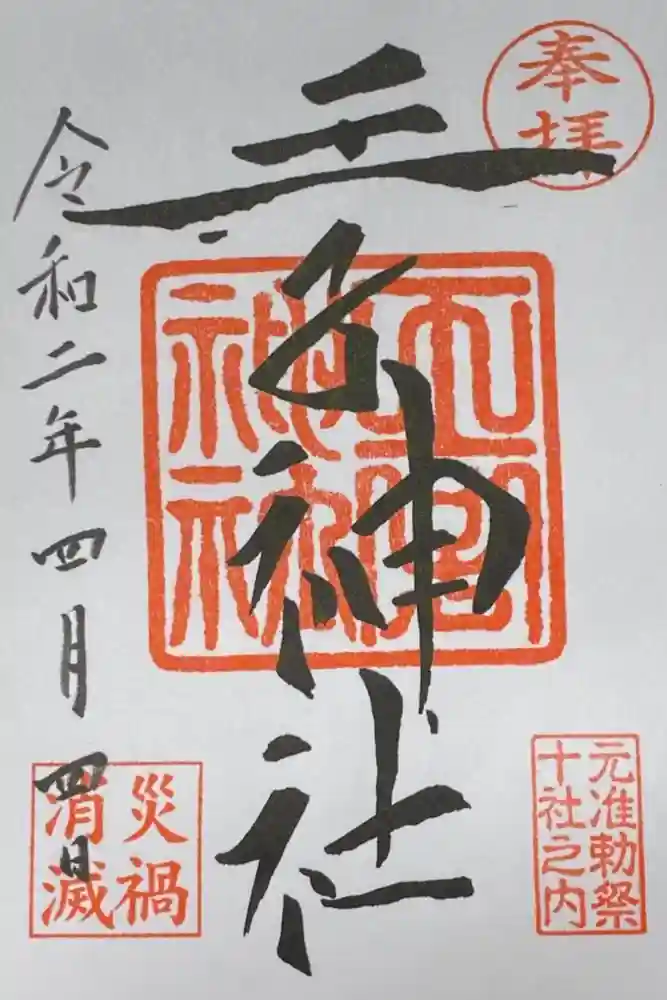 奉拝
王子神社
元准勅祭
十社之内
令和二年四月四日
災禍
消滅